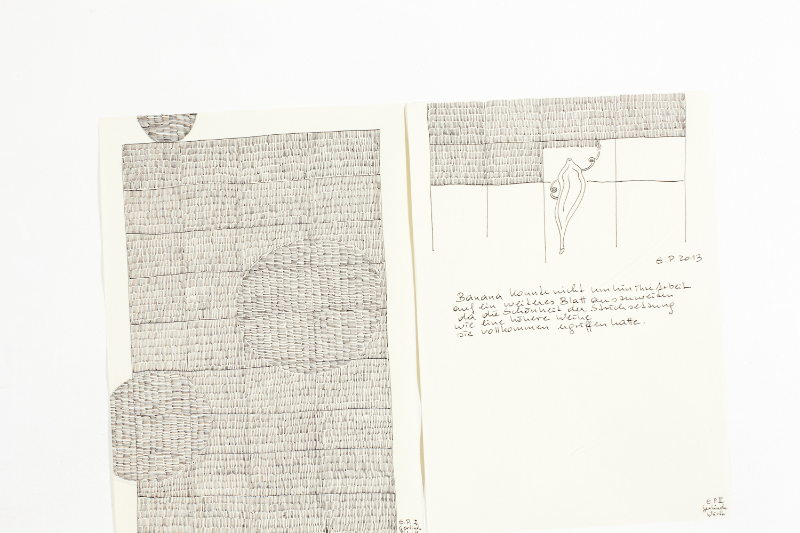 E.P. 2013
Banana konnte nicht umhin ihre Arbeit
auf ein weiteres Blatt auszuweiten
da die Schönheit der Strichsetzung
wie eine höhere Weihe
sie vollkommen ergriffen hatte.
E.P. 2
E.P. II